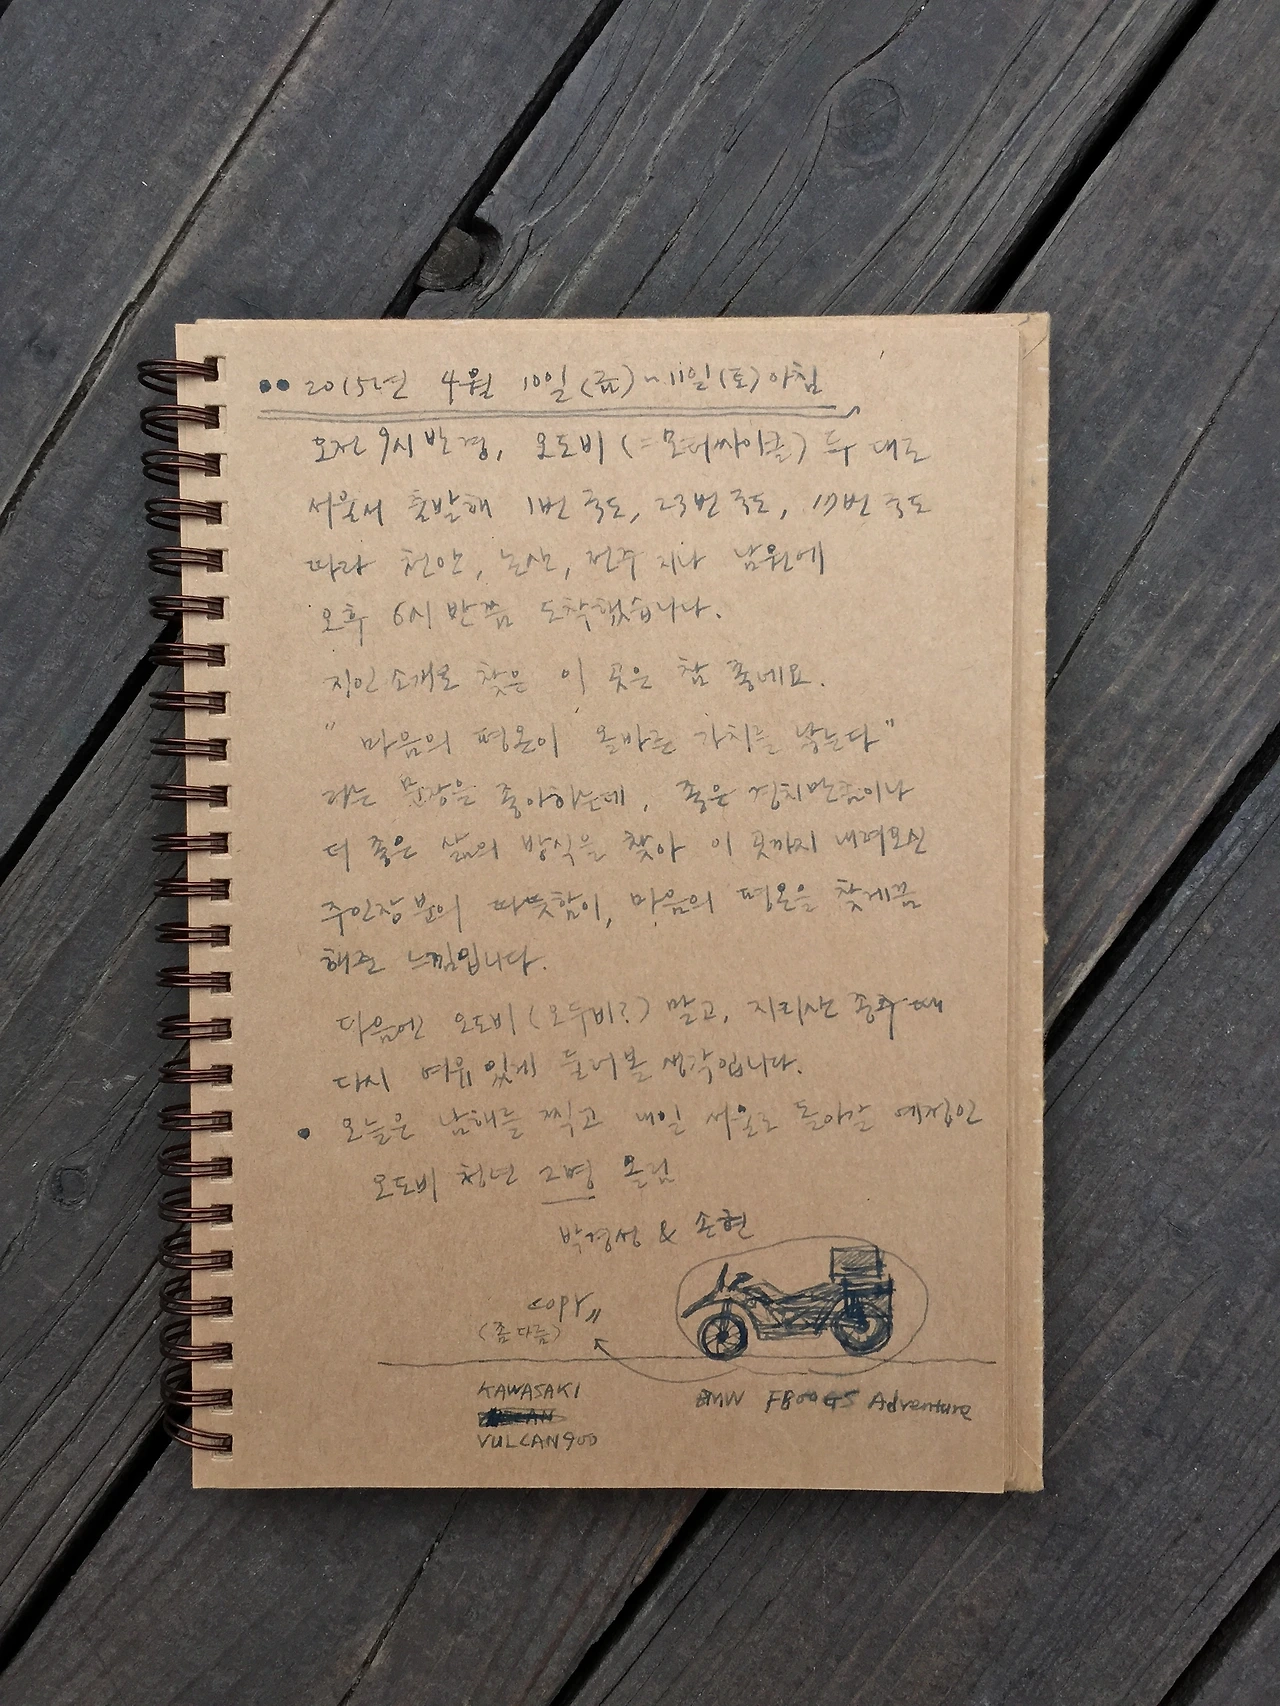 2015년 4월 10일(금)~11일(토) 아침
오전 9시 반경, 오도비(=모터싸이클) 두 대로
서울서 출발해 1번 국도, 23번 국도, 17번 국도
따라 천안, 논산, 전주 지나 남원에
오후 6시 반쯤 도착했습니다.
지인 소개로 찾은 이 곳은 참 좋네요.
"마음의 평온이 올바른 가치를 낳는다"
라는 문장을 좋아하는데, 좋은 경치만큼이나
더 좋은 삶의 방식을 찾아 이 곳까지 내려오신
주인장분의 따뜻함이, 마음의 평온을 찾게끔
해준 느낌입니다.
다음엔 오도비(오두비?) 말고, 지리산 종주 때
다시 여유 있게 둘러볼 생각입니다.
오늘은 남해를 찍고 내일 서울로 돌아갈 예정인
오도비 청년 2명 올림
박경성 & 손현
copy
(좀 다름)
KAWASAKI
VULCAN900
BMW F800GS Adventure